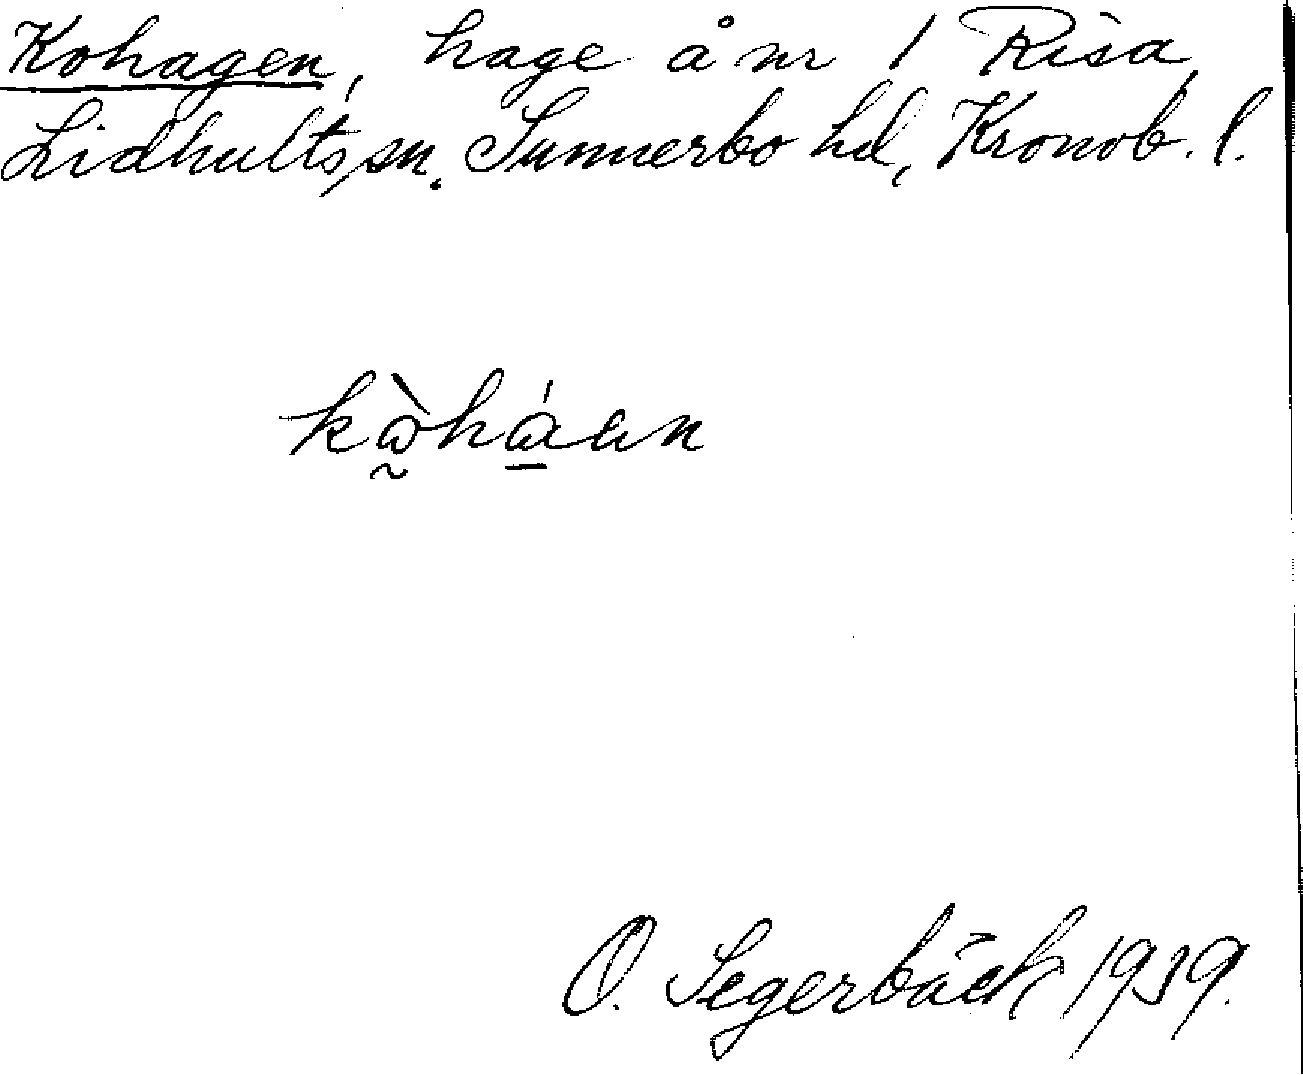 Kohagen, hage å nr 1 Risa,
Lidhults sn. Sunnerbo hd, Kronob. l.
O. Segerbäck 1939.